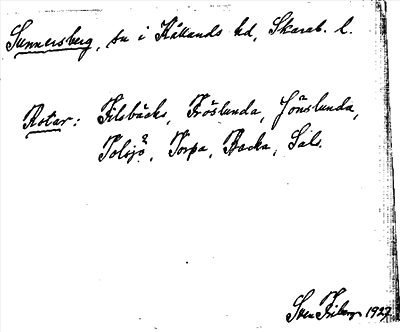 Sunnersberg, sn i Kållands hd, Skarab. l.
Rotar: Filsbäcks, Fröslunda, Jönslunda,
Tolsjö, Torpa, Backa, Säls.
Sven Friberg 1927